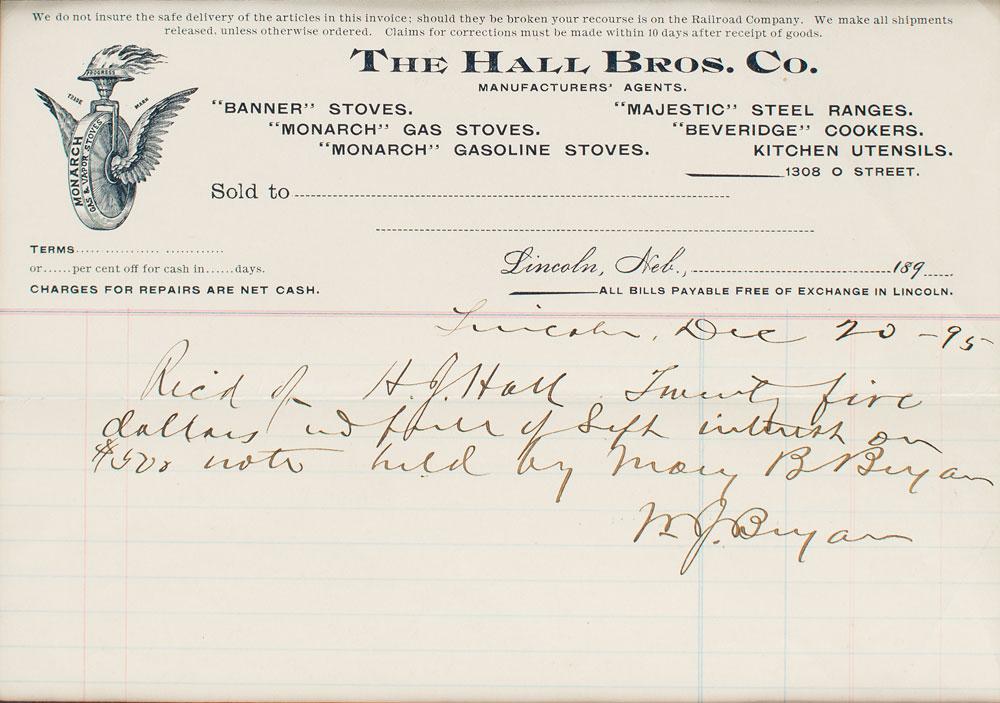 We do not insure the safe delivery of the articles in this invoice; should they be broken your recourse is on the Railroad Company. We make all shipments
released, unless otherwise ordered. Claims for corrections must be made within 10 days after receipt of goods.
THE HALL BROS. CO.
MANUFACTURERS' AGENTS.
"BANNER" STOVES. "MAJESTIC" STEEL RANGES.
"MONARCH" GAS STOVES. "BEVERIDGE" COOKERS.
"MONARCH" GASOLINE STOVES. KITCHEN UTENSILS.
1308 O STREET.
PROGRESS
TRADE MARK
MONARCH
GAS & VAPOR STOVES
Sold to
TERMS
or......per cent off for cash in......days.
Lincoln, Neb., 189
CHARGES FOR REPAIRS ARE NET CASH.
ALL BILLS PAYABLE FREE OF EXCHANGE IN LINCOLN.
Lincoln, Dec 20 -95
Rec'd of H. J. Hall Twenty five
dollars in full of Sept interest on
$500 note held by Mary B Bryan
W. J. Bryan